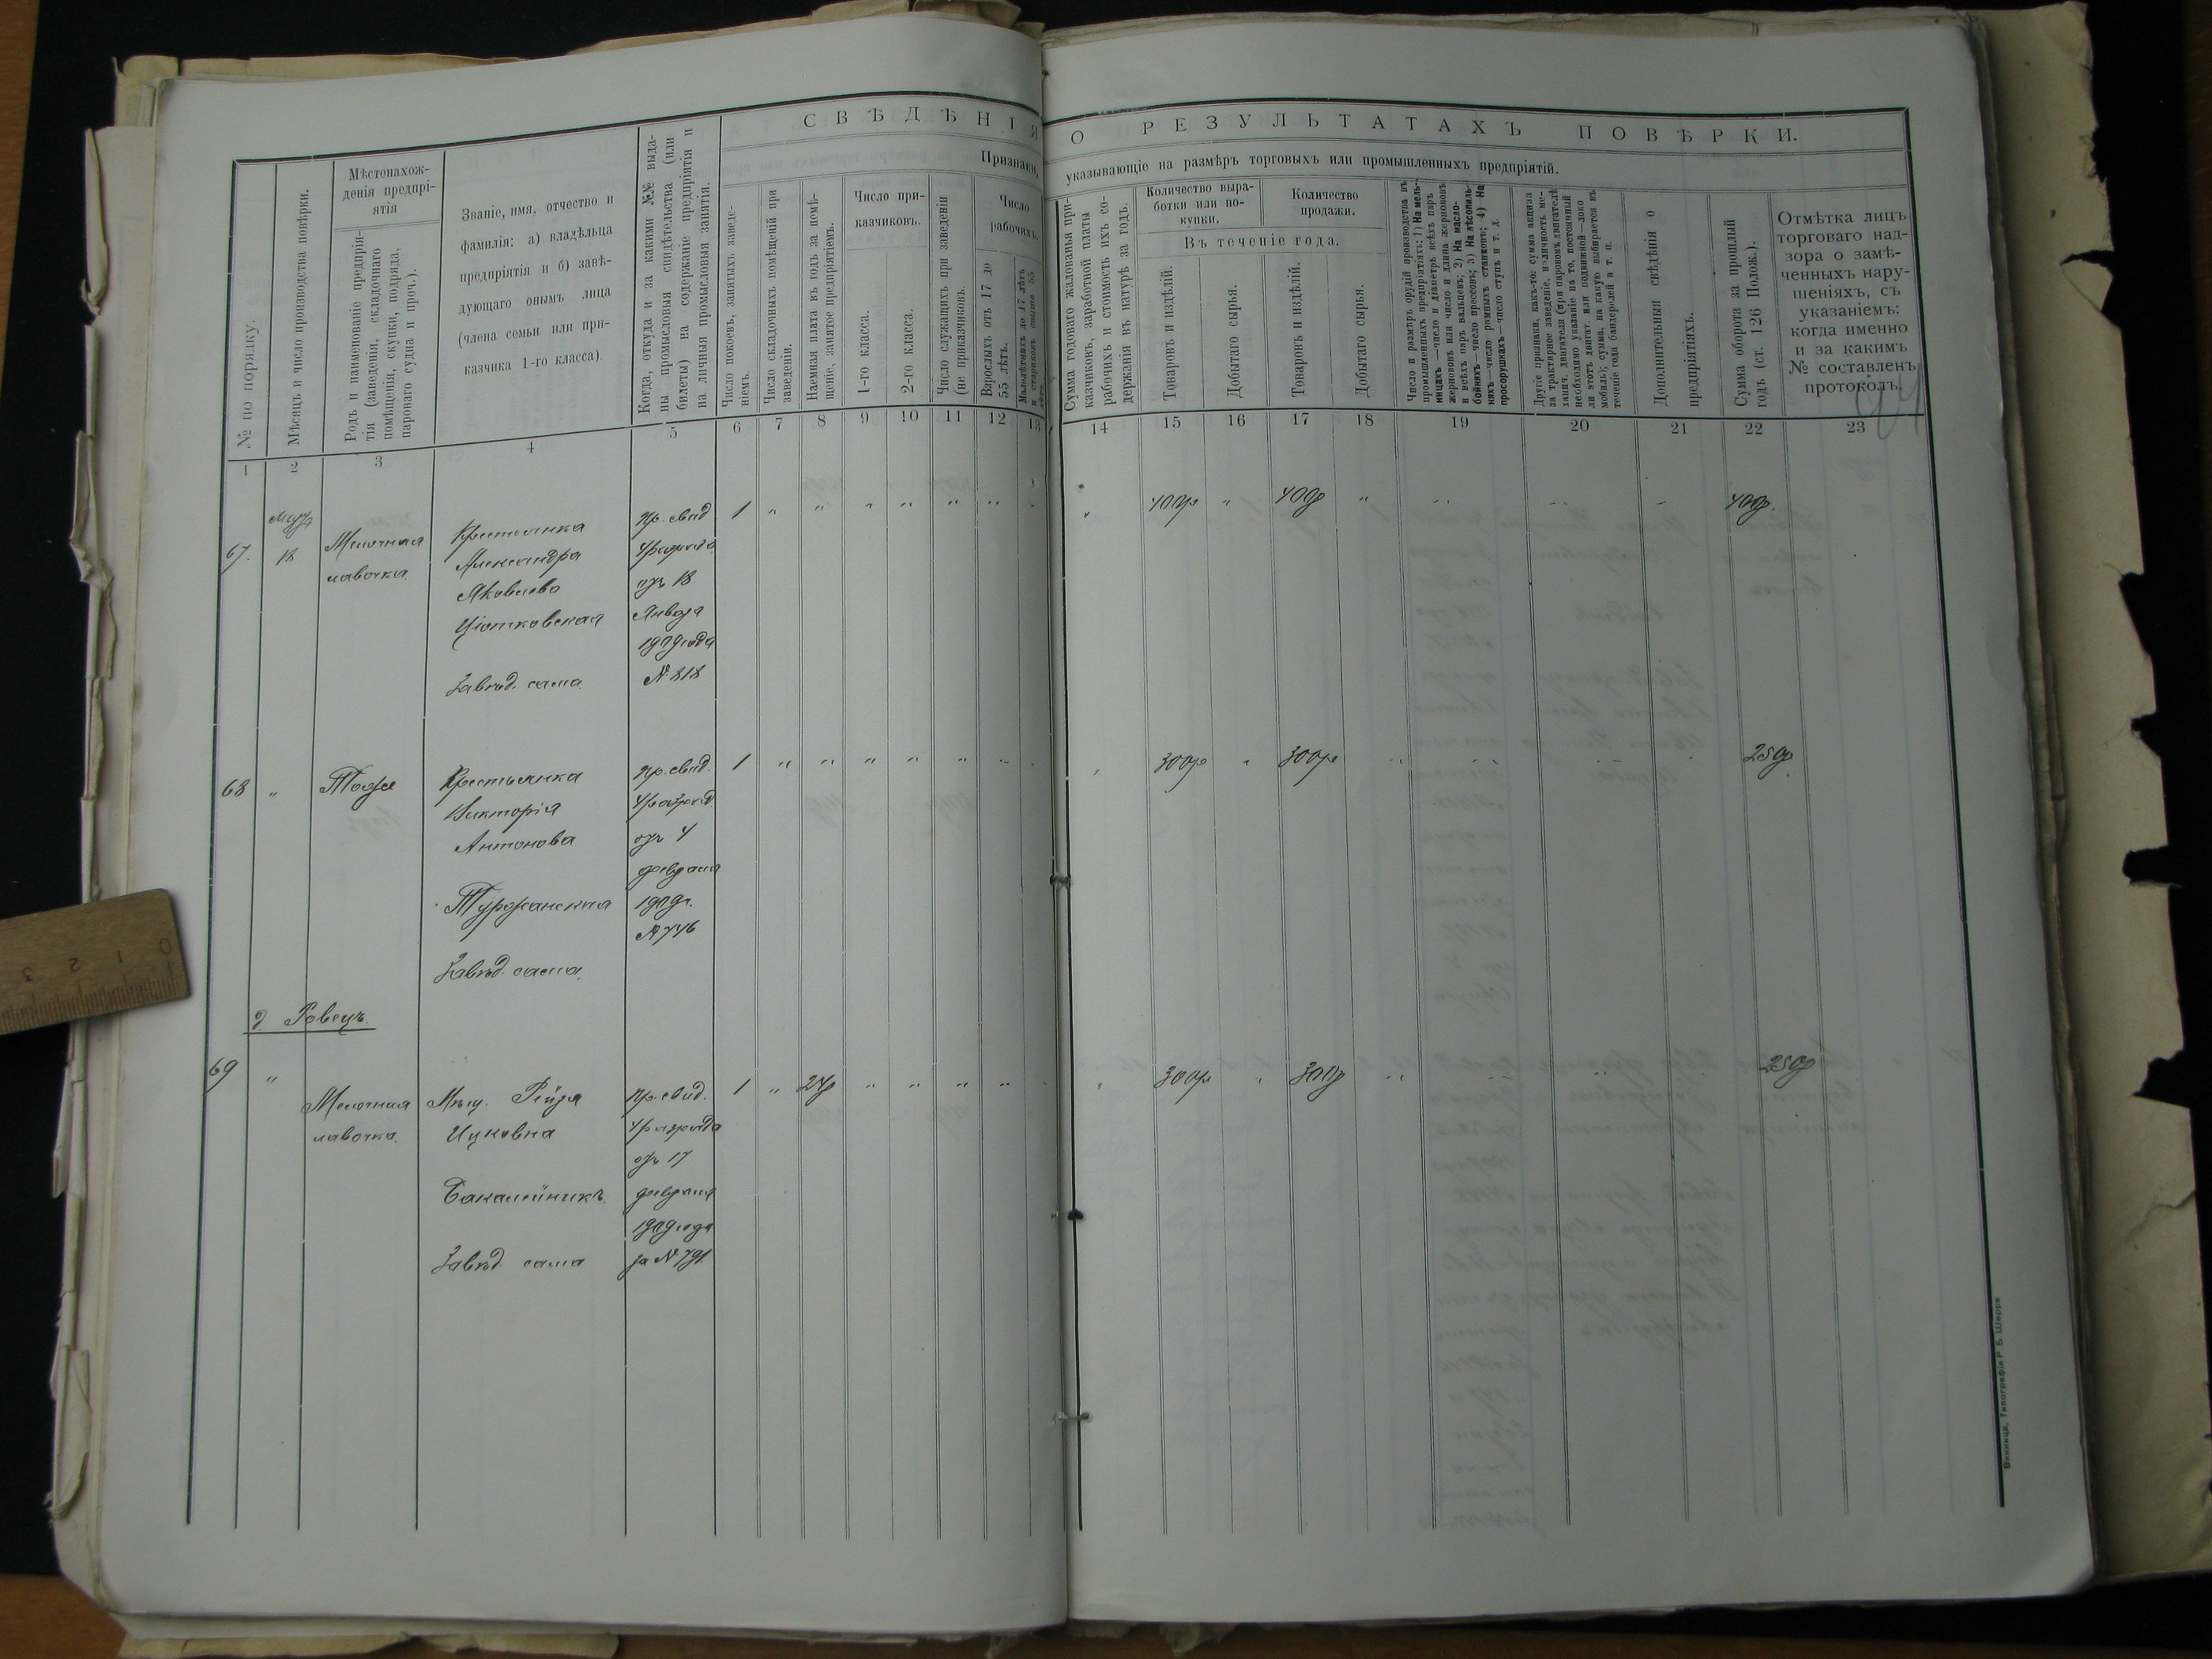 СВѢДѢНІЯ О РЕЗУЛЬТАТАХЪ ПОВѢРКИ.
Признаки, указывающіе на размѣръ торговыхъ или промышленныхъ предпріятій.
№ по порядку.
Мѣсяцъ и число производства повѣрки.
Мѣстонахож-
денія предпрі-
ятія
Родъ и наименованіе предпрія-
тія (заведенія, складочнаго
помѣщенія, скупки, подряда,
пароваго судна и проч.).
Званіе, имя, отчество и
фамилія: а) владѣльца
предпріятія и б) завѣ-
дующаго онымъ лица
(члена семьи или при-
казчика 1-го класса).
Когда, откуда и за какими №№ выда-
ны промысловыя свидѣтельства (или
билеты) на содержаніе предпріятія и
на личныя промысловыя занятія.
Число покоевъ, занятыхъ заведе-
ніемъ.
Число складочныхъ помѣщеній при
заведеніи.
Наемная плата въ годъ за помѣ-
щеніе, занятое предпріятіемъ.
Число при-
казчиковъ.
1-го класса.
2-го класса.
Число служащихъ при заведеніи
(не приказчиковъ).
Число
рабочихъ.
Взрослыхъ отъ 17 до
55 лѣтъ.
Малолѣтнихъ до 17 лѣтъ
и стариковъ свыше 55
лѣтъ.
Сумма годоваго жалованья при-
казчиковъ, заработной платы
рабочихъ и стоимость ихъ со-
держанія въ натурѣ за годъ.
Количество выра-
ботки или по-
купки.
Количество
продажи.
Въ теченіе года.
Товаровъ и издѣлій.
Добытаго сырья.
Товаровъ и издѣлій.
Добытаго сырья.
Число и размѣръ орудій производства въ
промышленныхъ предпріятіяхъ: 1) На мель-
ницахъ—число и діаметръ всѣхъ паръ
жернововъ или число и длина жернововъ
и всѣхъ паръ вальцевъ; 2) На масло-
бойняхъ—число прессовъ; 3) На лѣсопиль-
няхъ—число рамныхъ станковъ; 4) На
просорушкахъ—число ступъ и т. д.
Другіе признаки, какъ-то: сумма акциза
за трактирное заведеніе, наличность ме-
ханич. двигателя (при паровомъ двигателѣ
необходимо указаніе на то, постоянный
ли этотъ двигат. или подвижной—локо
мобиль); сумма, на какую выбирается въ
теченіе года бандеролей и т. п.
Дополнительныя свѣдѣнія о
предпріятіяхъ.
Сумма оборота за прошлый
годъ (ст. 126 Полож.).
Отмѣтка лицъ
торговаго над-
зора о замѣ-
ченныхъ нару-
шеніяхъ, съ
указаніемъ:
когда именно
и за какимъ
№ составленъ
протоколъ.
1 2 3 4 5 6 7 8 9 10 11 12 13 14 15 16 17 18 19 20 21 22 23
67.
18
Мелочная
лавочка.
Крестьянка
Александра
Яковлева
Ціотковская
Завѣд. сама.
пр. свид
4 разряда
отъ 18
Января
1909 года
№ 818
1 " " " " " " " 400р " 400р " " " " 400р.
68 " Тоже
Крестьянка
Викторія
Антонова
Туржанская
Завѣд. сама.
пр. свид.
4 разряд
отъ 4
февраля
1909г.
№ 746
1 " " " " " " 300р " 300р " " " 250р
д Ровецъ.
69 "
Мелочная
лавочка.
Мѣщ. Рейзя
Ицковна
Бакалейникъ.
Завѣд. сама
пр. свид.
4 разряда
отъ 17
февраля
1909 года
за № 791.
1 " 24р " " " " 300р " 300р " " " 250р
Винница, Типографія Р. Б. Шерра